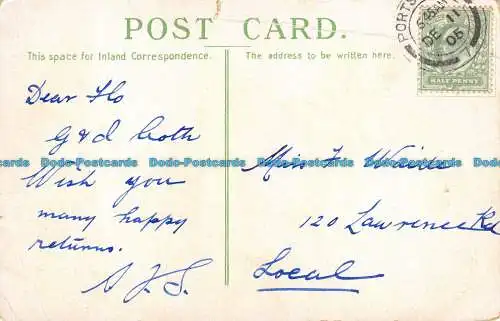 POST CARD.
This space for Inland Correspondence.
The address to be written here.
PORTS
5.45AM
DE 11
05
HALF PENNY
Dear Flo
G & I both
Wish you
many happy
returns.
A.F.S.
Miss F. Wade
120 Lawrence Rd
Local
Dodo-Postcards Dodo-Postcards Dodo-Postcards Dodo-Postcards Dodo-Postcards